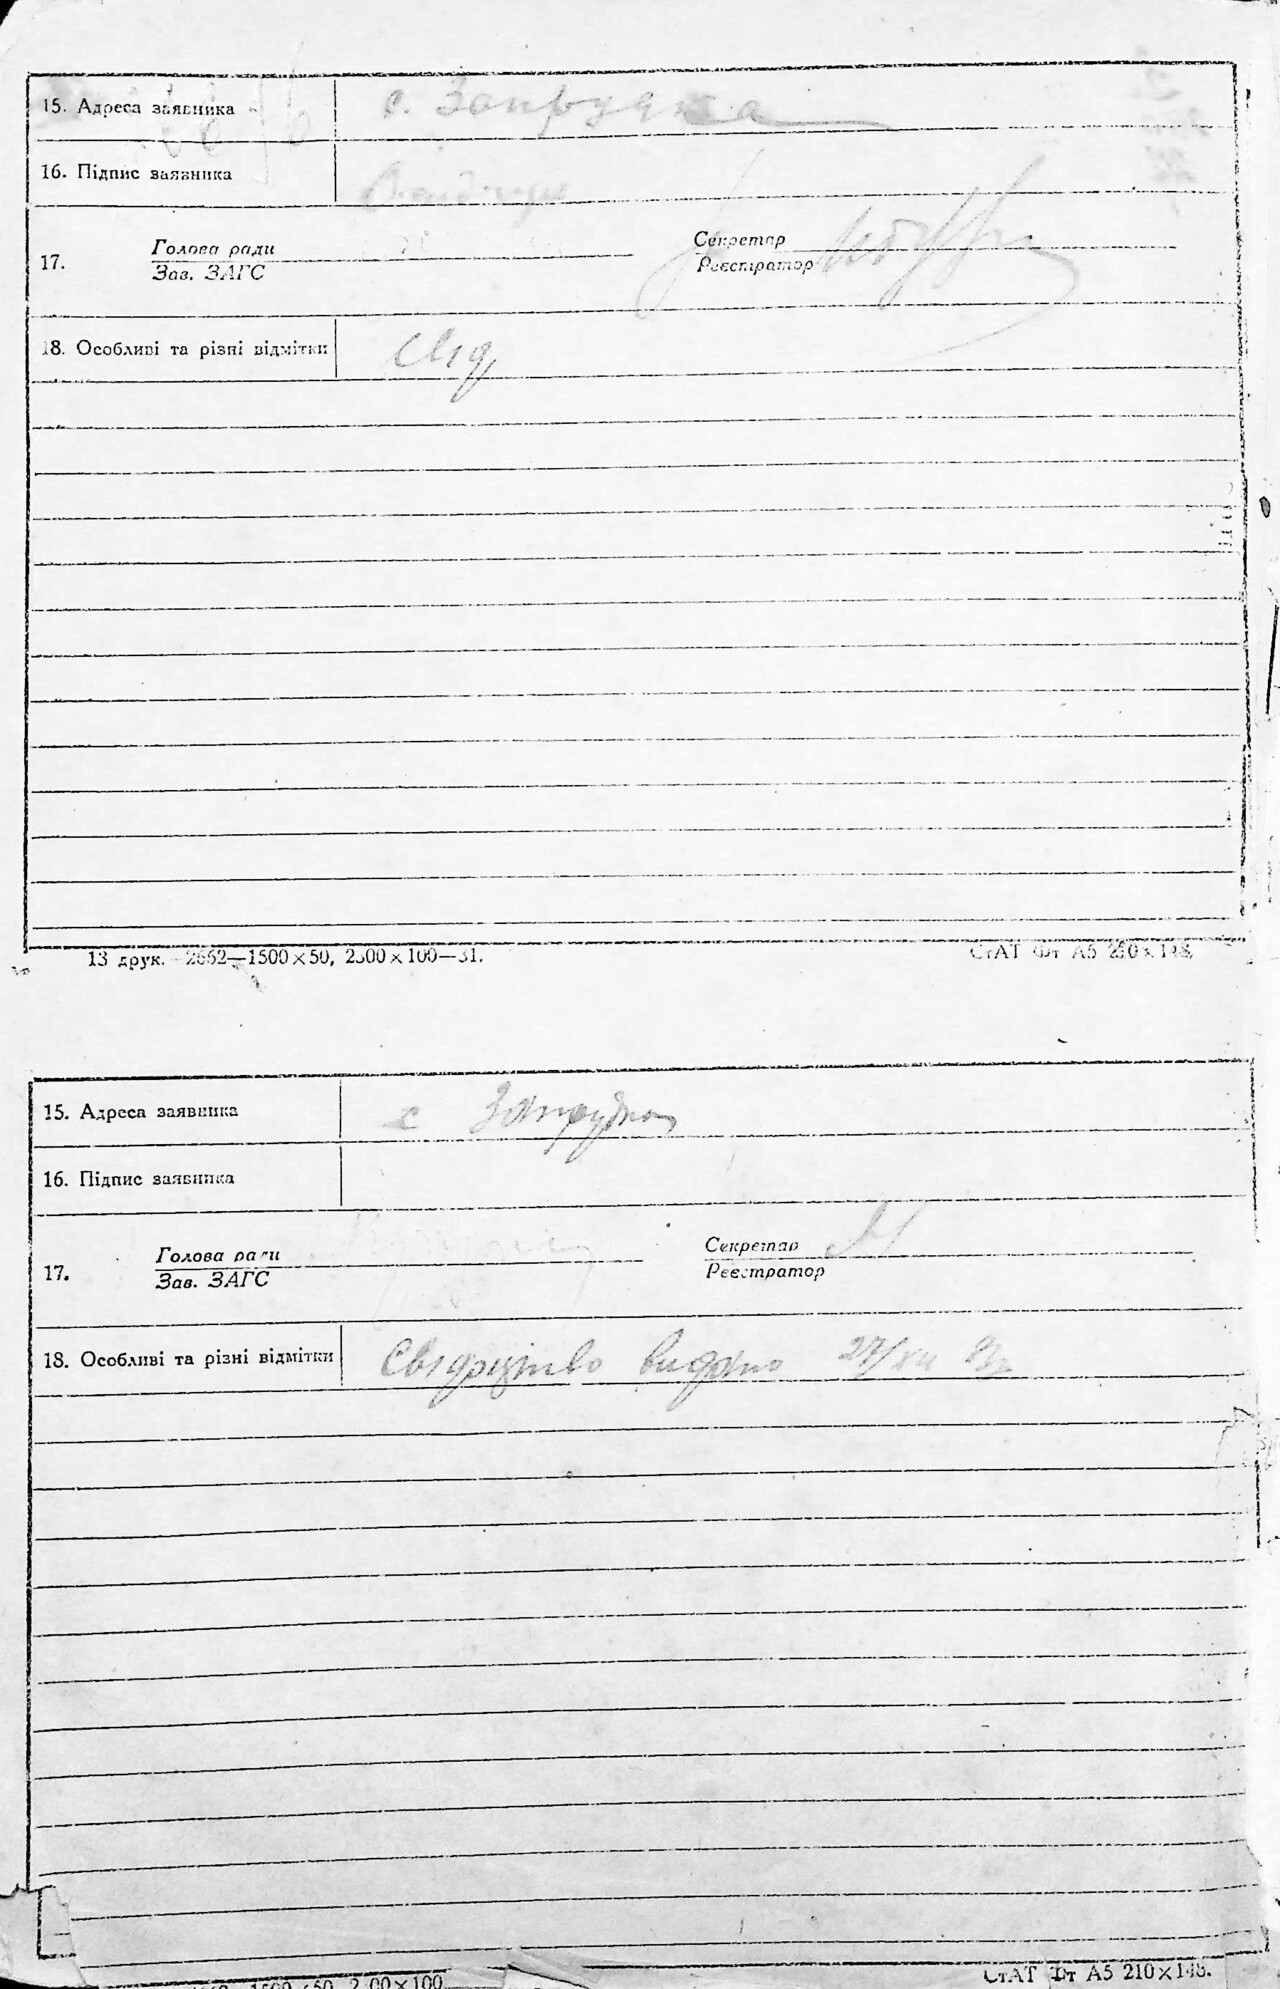 15. Адреса заявника с. Запрудка
16. Підпис заявника
Голова ради Секретар
17. Зав. ЗАГС Реєстратор
18. Особливі та різні відмітки Свід,
13 друк. 2662—1500×50, 2300×100—31. СтАТ Фт А5 210×148.
15. Адреса заявника с Запрудка
16. Підпис заявника
Голова ради Секретар
17. Зав. ЗАГС Реєстратор
18. Особливі та різні відмітки Свідоцтво видано 27/XII
СтАТ Фт А5 210×148.